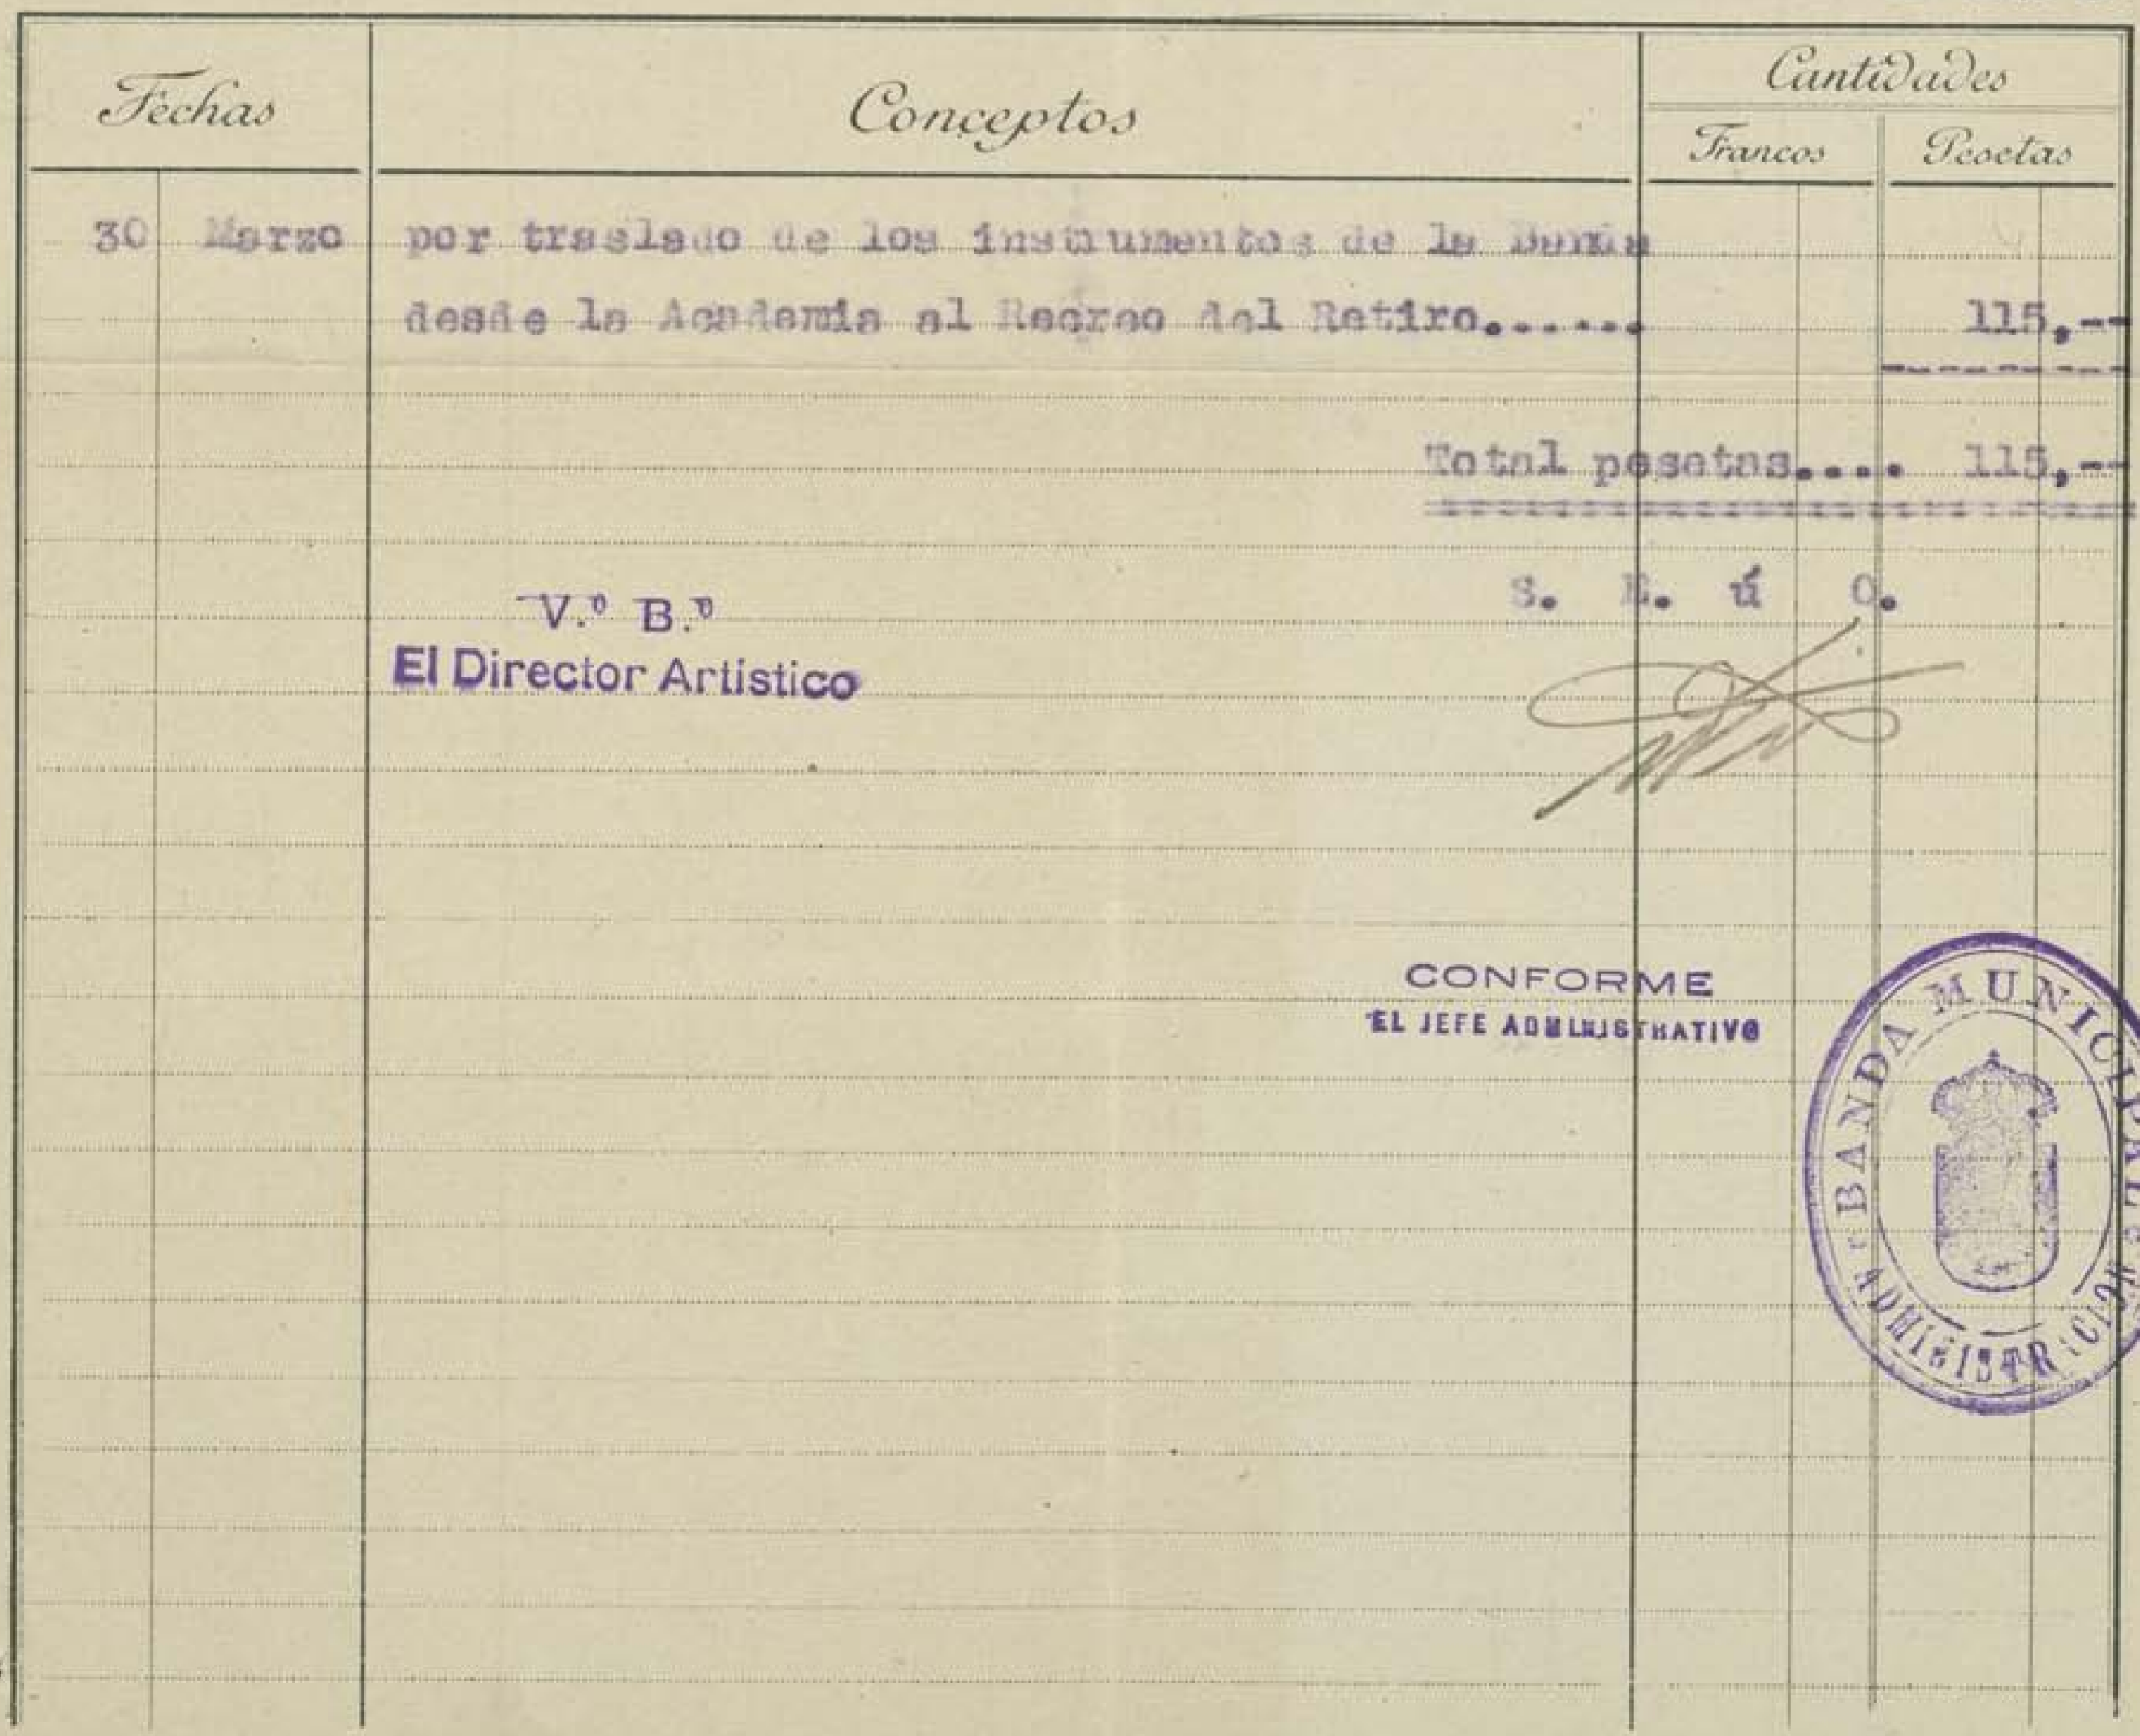 Fechas
Conceptos
Cantidades
Francos
Pesetas
30 Marzo por traslado de los instrumentos de la Banda
desde la Academia al Recreo del Retiro...... 115,--
Total pesetas.... 115,--
S. E. ú O.
V.º B.º
El Director Artístico
CONFORME
EL JEFE ADMINISTRATIVO
BANDA MUNICIPAL
ADMINISTRACION